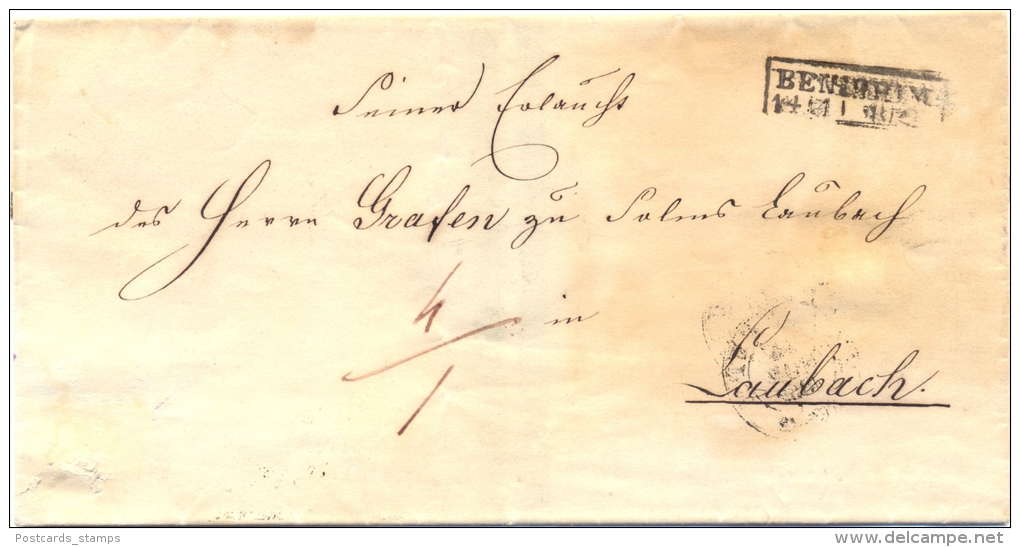 BENSHEIM
Seiner Erlaucht
des Herrn Grafen zu Solms Laubach
4
in
1
Laubach.
Postcards_stamps
www.delcampe.net